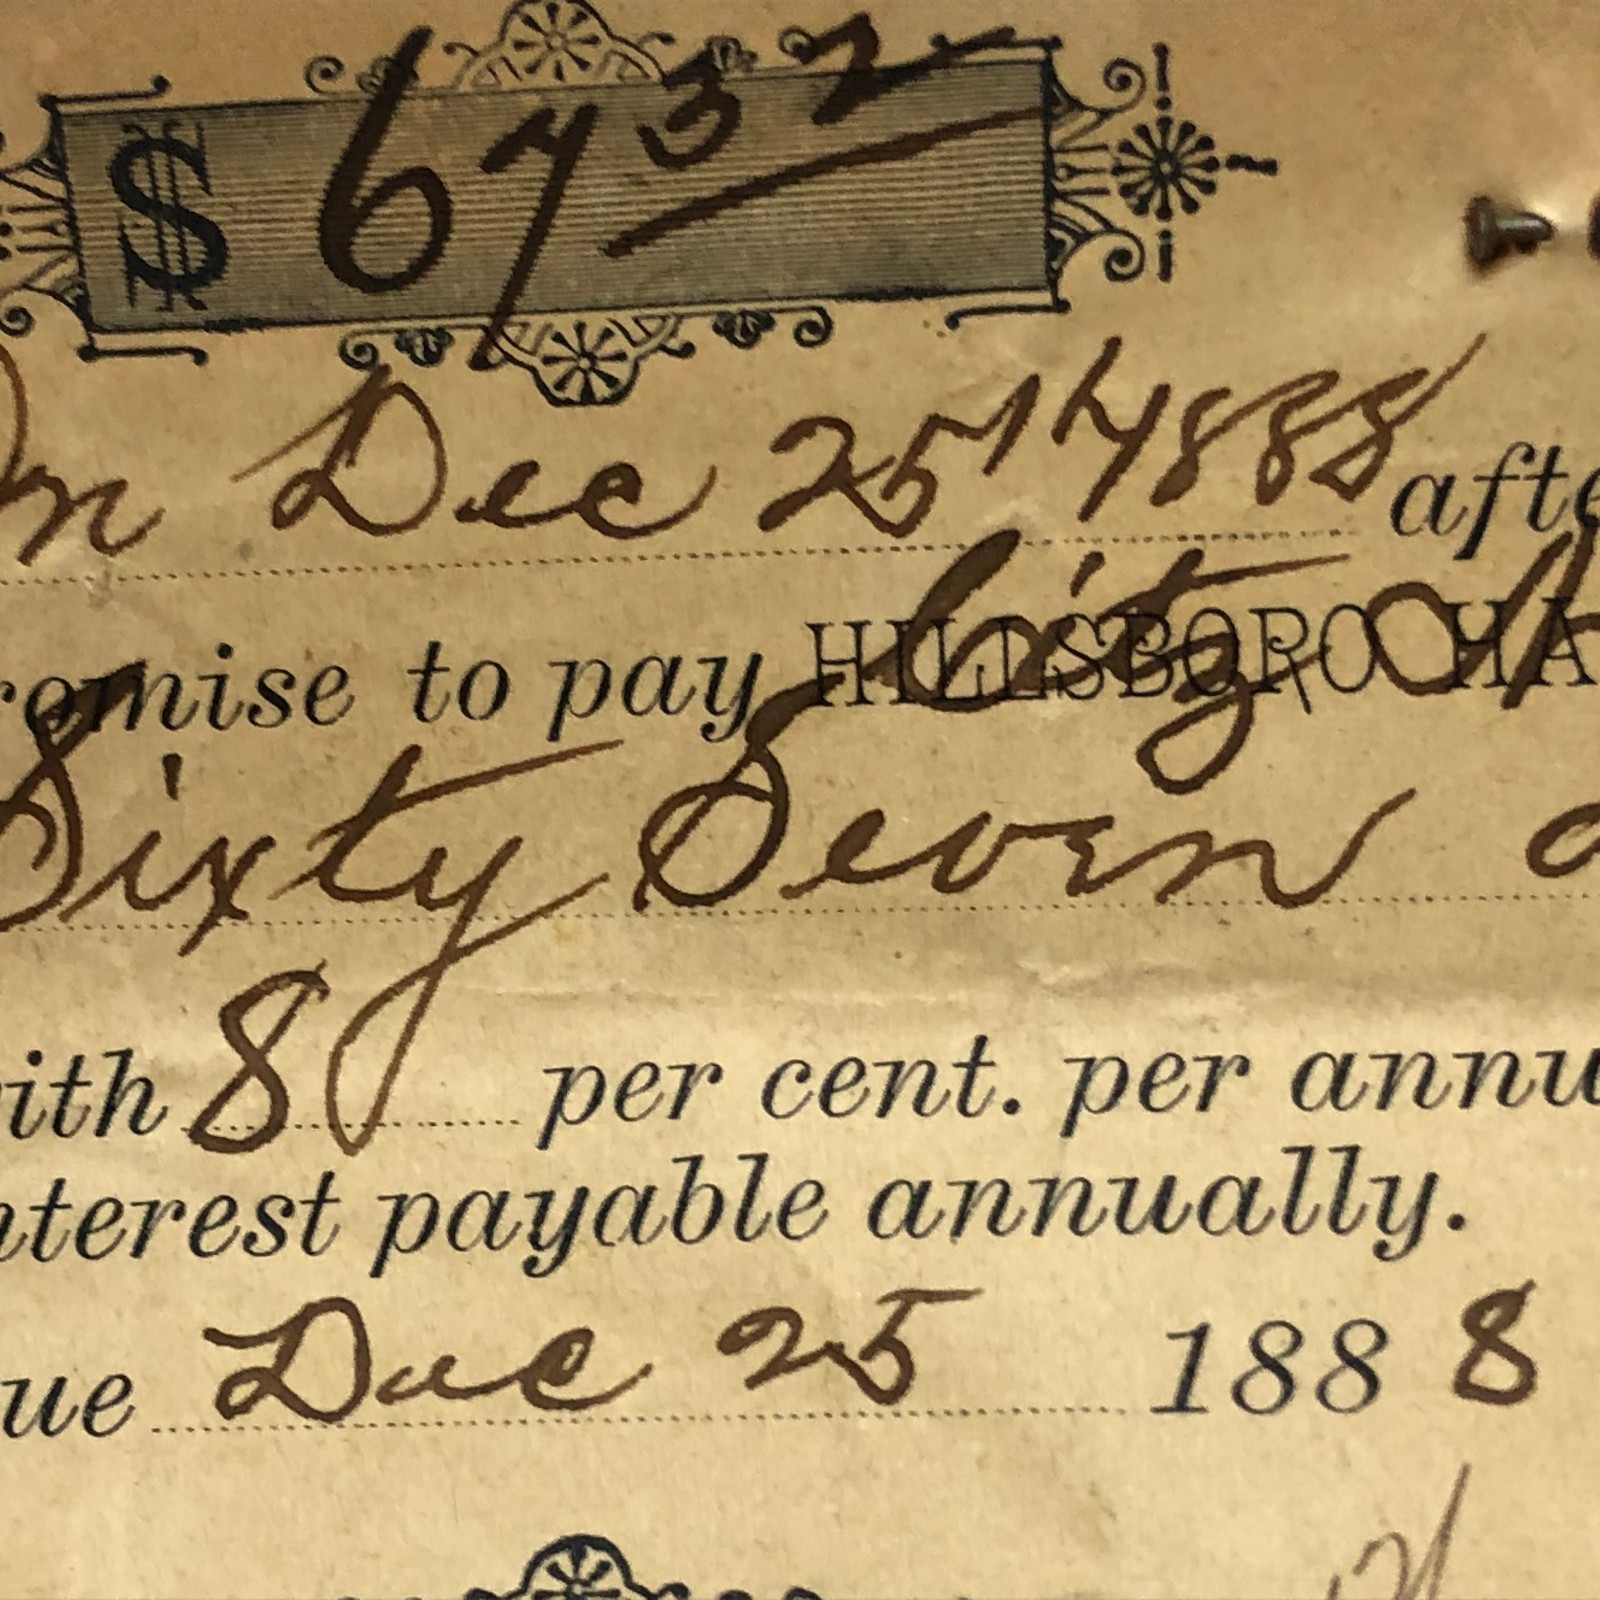 $ 67 32
On Dec 25th 1888 afte
romise to pay HILLSBORO HA
Sixty Seven
with 8 per cent. per annu
nterest payable annually.
ue Dec 25 1888